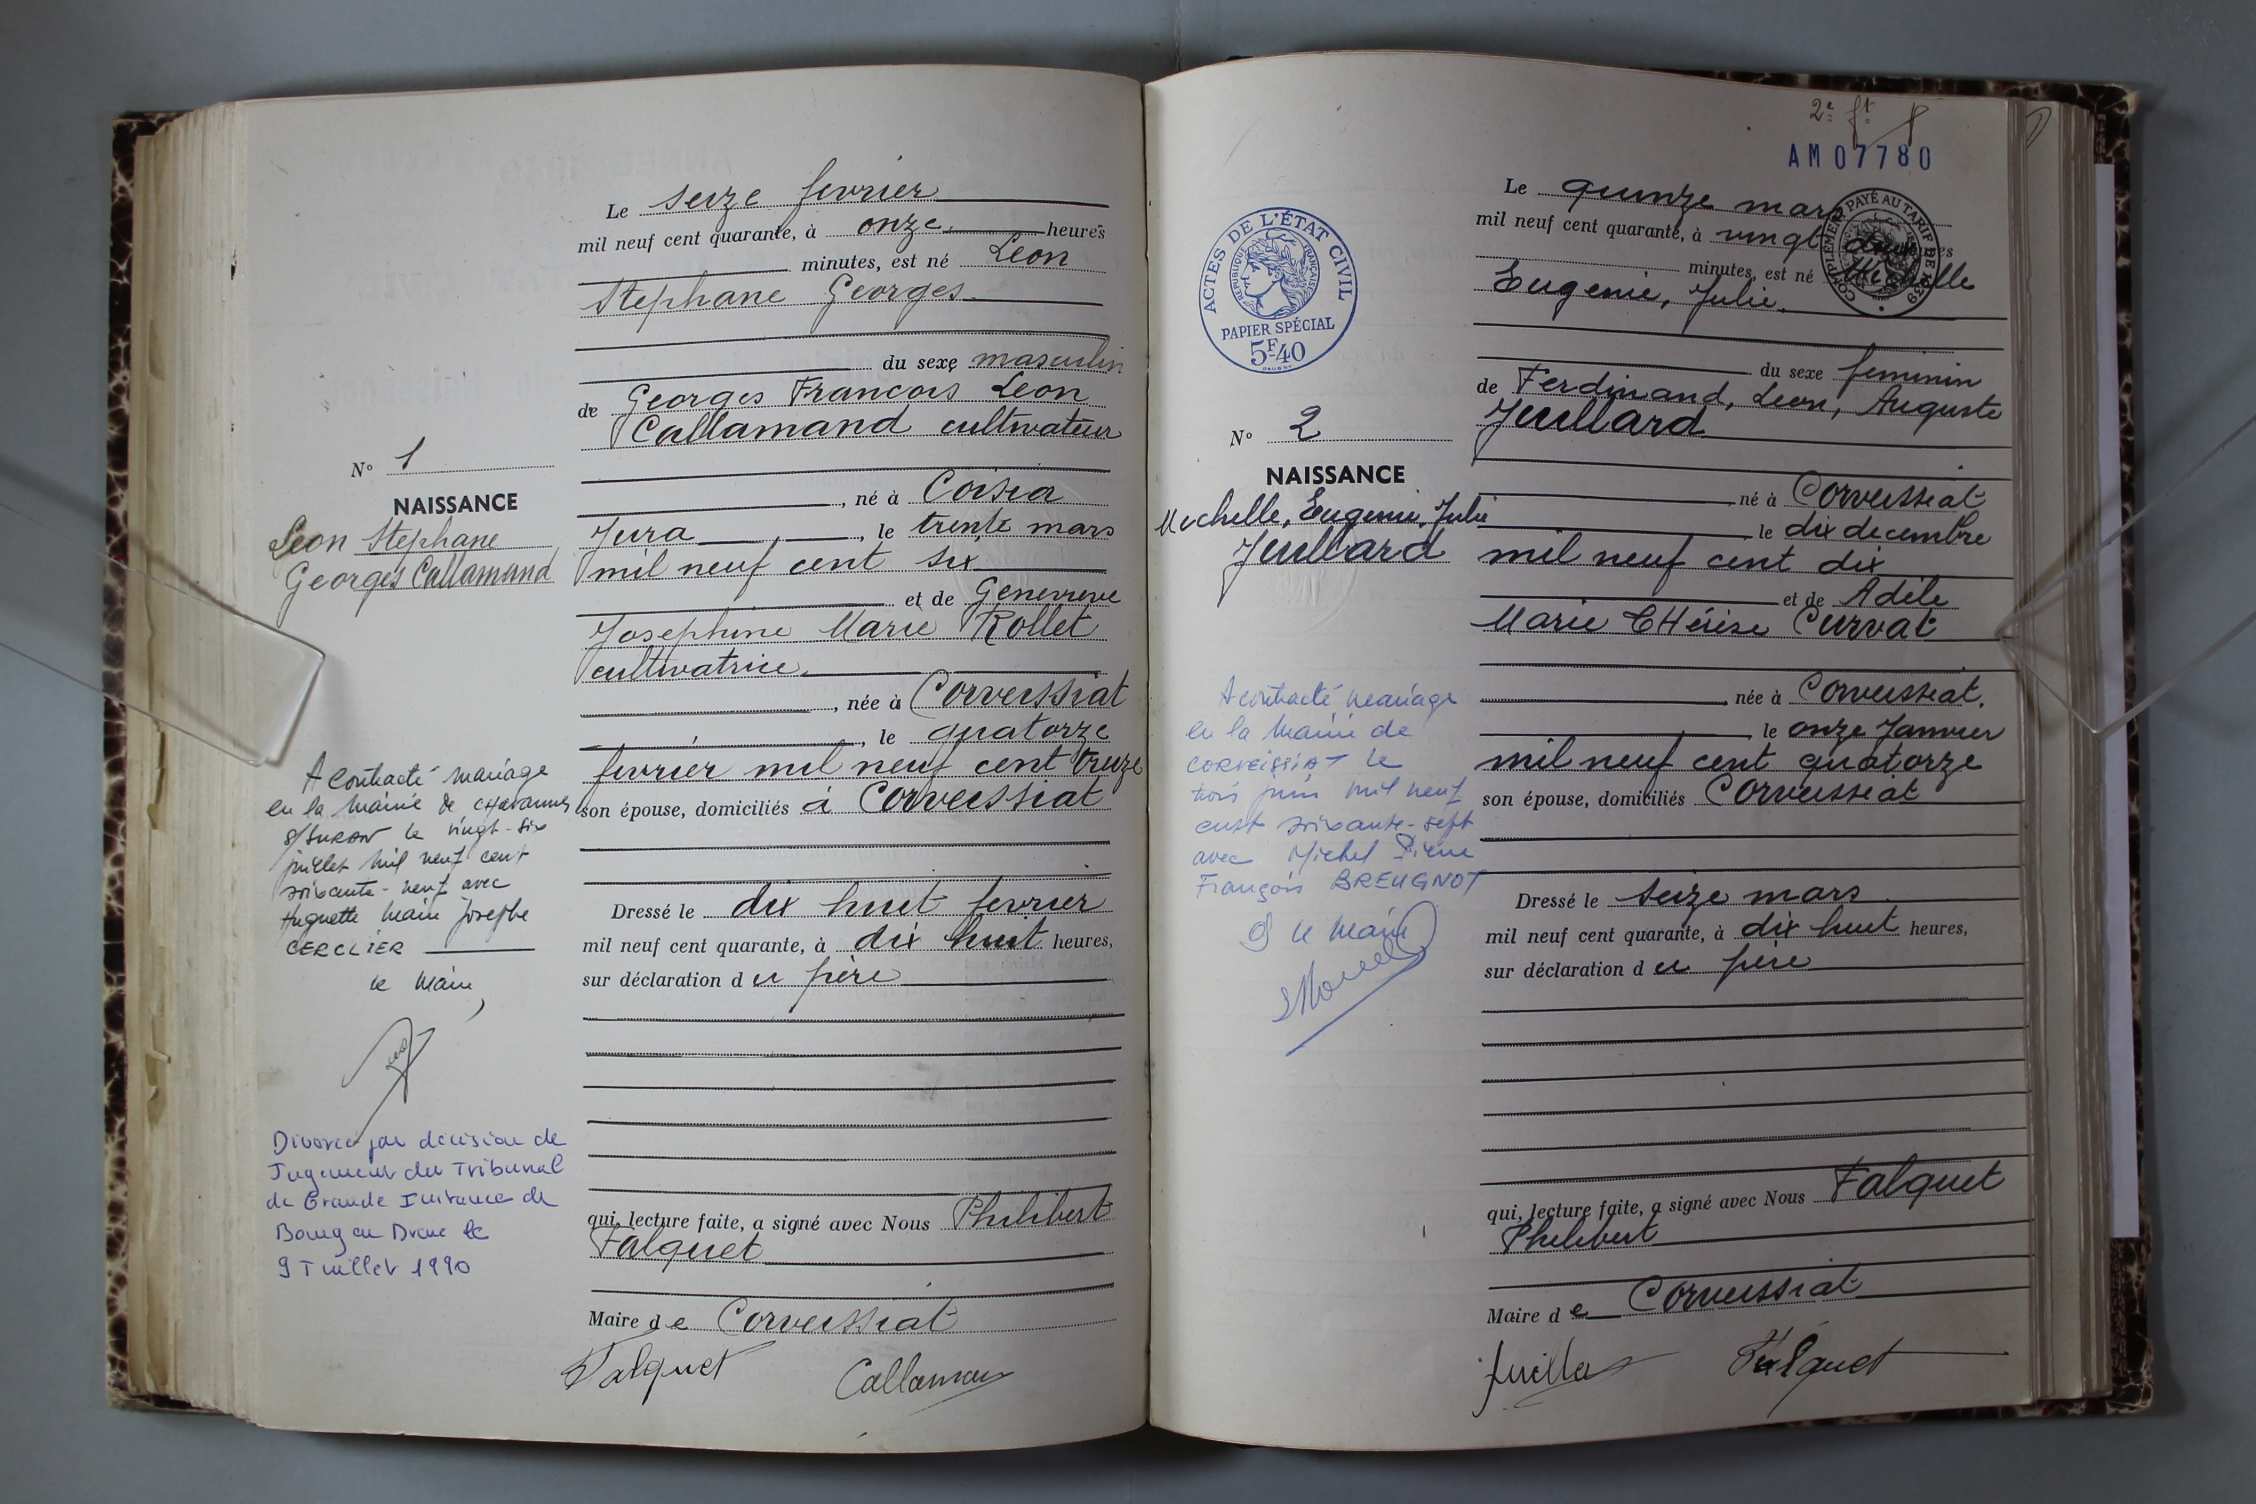 N° 1
NAISSANCE
Leon Stephane
Georges Callamand
A contracté mariage
en la mairie de CHavannes
s/SURAN le vingt-six
juillet mil neuf cent
soixante-neuf avec
Huguette Marie Josephe
CERCLIER
le Maire,
Divorce par décision de
Jugement du Tribunal
de Grande Instance de
Bourg en Bresse le
9 Juillet 1990
Le seize fevrier
mil neuf cent quarante, à onze heures
minutes, est né Leon
Stephane Georges
du sexe masculin
de Georges Francois Leon
Callamand cultivateur
, né à Coisia
Jura, le trente mars
mil neuf cent six
et de Genevieve
Josephine Marie Rollet
cultivatrice
, née à Corveissiat
, le quatorze
fevrier mil neuf cent treize
son épouse, domiciliés à Corveissiat
Dressé le dix huit fevrier
mil neuf cent quarante, à dix huit heures,
sur déclaration du père
qui, lecture faite, a signé avec Nous Philibert
Falquet
Maire de Corveissiat
Falquet Callaman
2e ft
AM07780
ACTES DE L'ÉTAT CIVIL
RÉPUBLIQUE FRANÇAISE
PAPIER SPÉCIAL
5F.40
COMPLÉMENT PAYÉ AU TARIF DE 1939
N° 2
NAISSANCE
Michelle, Eugenie, Julie
Juillard
A contracté mariage
en la Mairie de
CORVEISSIAT le
trois juin mil neuf
cent soixante-sept
avec Michel Pierre
François BREUGNOT
le Maire
Le quinze mars
mil neuf cent quarante, à vingt deux heures
minutes, est né Michelle
Eugenie, Julie
du sexe feminin
de Ferdinand, Leon, Auguste
Juillard
né à Corveissiat
le dix decembre
mil neuf cent dix
et de Adèle
Marie THérèse Curvat
née à Corveissiat.
le onze Janvier
mil neuf cent quatorze
son épouse, domiciliés Corveissiat
Dressé le seize mars
mil neuf cent quarante, à dix huit heures,
sur déclaration du père
qui, lecture faite, a signé avec Nous Falquet
Philibert
Maire de Corveissiat
Juilla Falquet